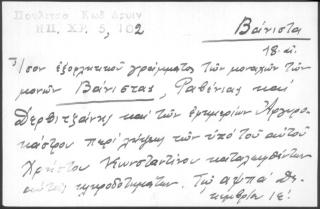 Πουλίτσα Κωδ. Δρων
ΗΠ. ΧΡ. 5, 102
Βάνιστα
18. αἰ.
Ἴσον ἐξοφλητικοῦ γράμματος τῶν μοναχῶν τῶν
μονῶν Βάνιστας, Ραβένιας καί
Δερβιτζάνης καί τῶν ἐφημερίων Ἀργυρο-
κάστρου περί λήψεως τῶν ὑπό τοῦ αὐτοῦ
Χρήστου Κωνσταντίνου καταλειφθέντων
αὐτοῖς κληροδοτημάτων. Τῷ αψπά Δε-
κεμβρίῳ ιε΄.